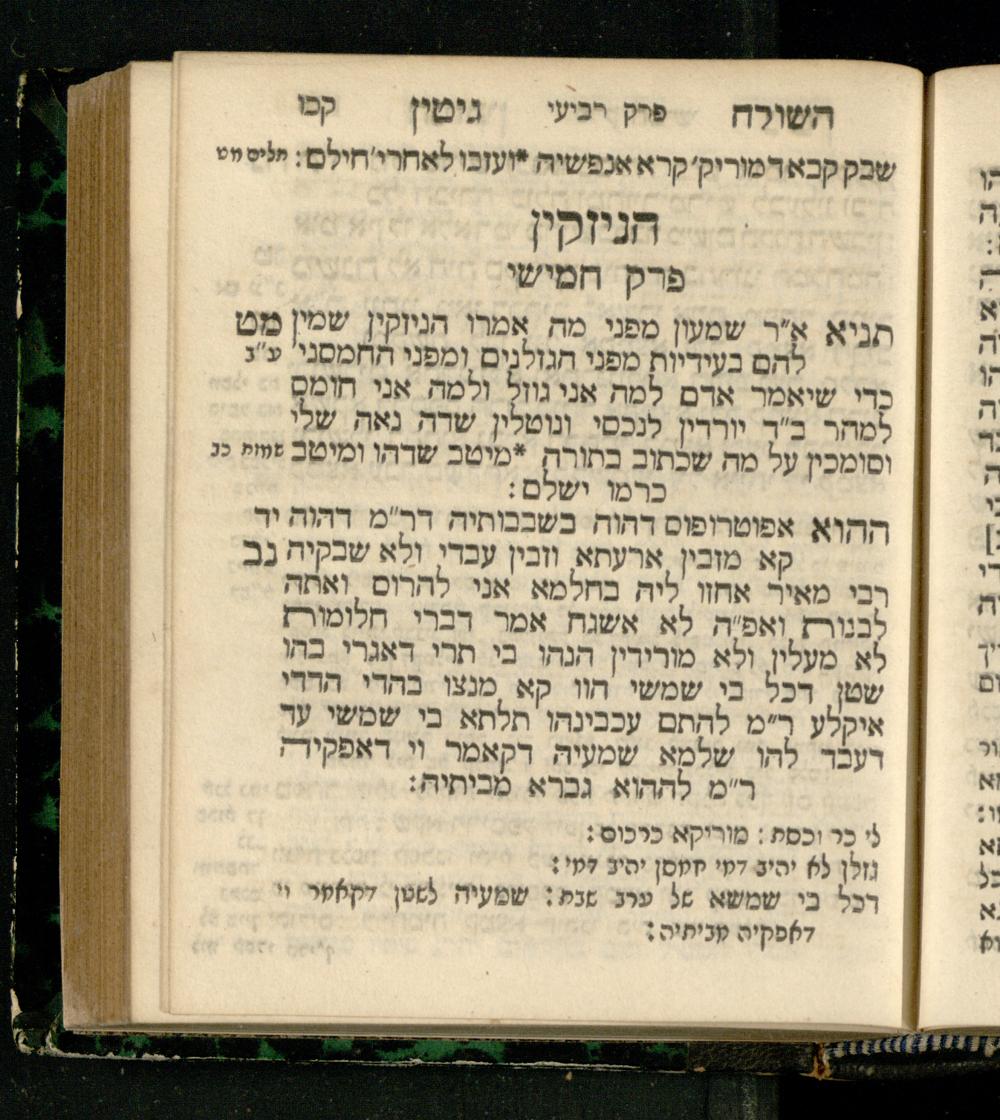 השולח פרק רביעי גיטין קכו
שבק קבא דמוריק׳ קרא אנפשיה *ועזבו לאחרי׳ חילם: תליס מט
הניזקין
פרק חמישי
תניא א״ר שמעון מפני מה אמרו הניזקין שמין מט
להם בעידיות מפני הגזלנים ומפני החמסני׳ ע״ב
כדי שיאמר אדם למה אני גוזל ולמה אני חומס
למחר ב״ד יורדין לנכסי ונוטלין שדה נאה שלי
וסומכין על מה שכתוב בתורה *מיטב שדהו ומיטב שמות כב
כרמו ישלם:
ההוא אפוטרופוס דהוה בשבבותיה דר״מ דהוה יד
קא מזבין ארעתא וזבין עבדי ולא שבקיה נב
רבי מאיר אחזו ליה בחלמא אני להרוס ואתה
לבנות ואפ״ה לא אשגח אמר דברי חלומות
לא מעלין ולא מורידין הנהו בי תרי דאגרי בהו
שטן דכל בי שמשי הוו קא מנצו בהדי הדדי
איקלע ר״מ להתם עכבינהו תלתא בי שמשי עד
דעבד להו שלמא שמעיה דקאמר וי דאפקיה
ר״מ לההוא גברא מביתיה:
לי כר וכסת: מוריקא כרכוס:
גזלן לא יהיב דמי חמסן יהיב דמי:
דכל בי שמשא של ערב שבת: שמעיה לשטן דקאמר וי
דאפקיה מביתיה: